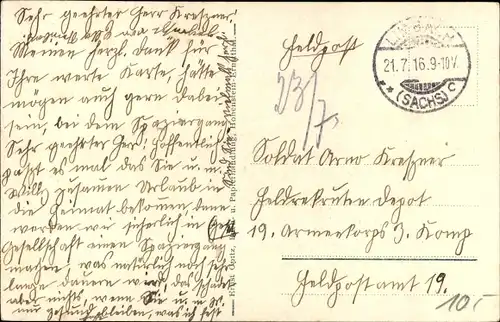 Sehr geehrter Herr Kreßner!
Meinen herzl. Dank für
Ihre werte Karte, hätte
mögen auch gern dabei
sein, bei dem Spaziergang.
Sehr geehrter Herr! Hoffentlich
paßt es mal das Sie u. m.
Willy zusamen Urlaub in
die Heimat bekomen, dann
werden wir sicherlich in
Gesellschaft einen Spaziergang
machen, was natürlich noch sehr
lange dauern wird, das schadet
aber nichts, wenn Sie u. m.
nur gesund bleiben, was ich fest
Feldpost
21.7.16.9-10V.
* (SACHS) c
23/7
Soldat Arno Kreßner
Feldrekruten Depot
19. Armeekorps 3. Komp
Feldpostamt 19.
10.-